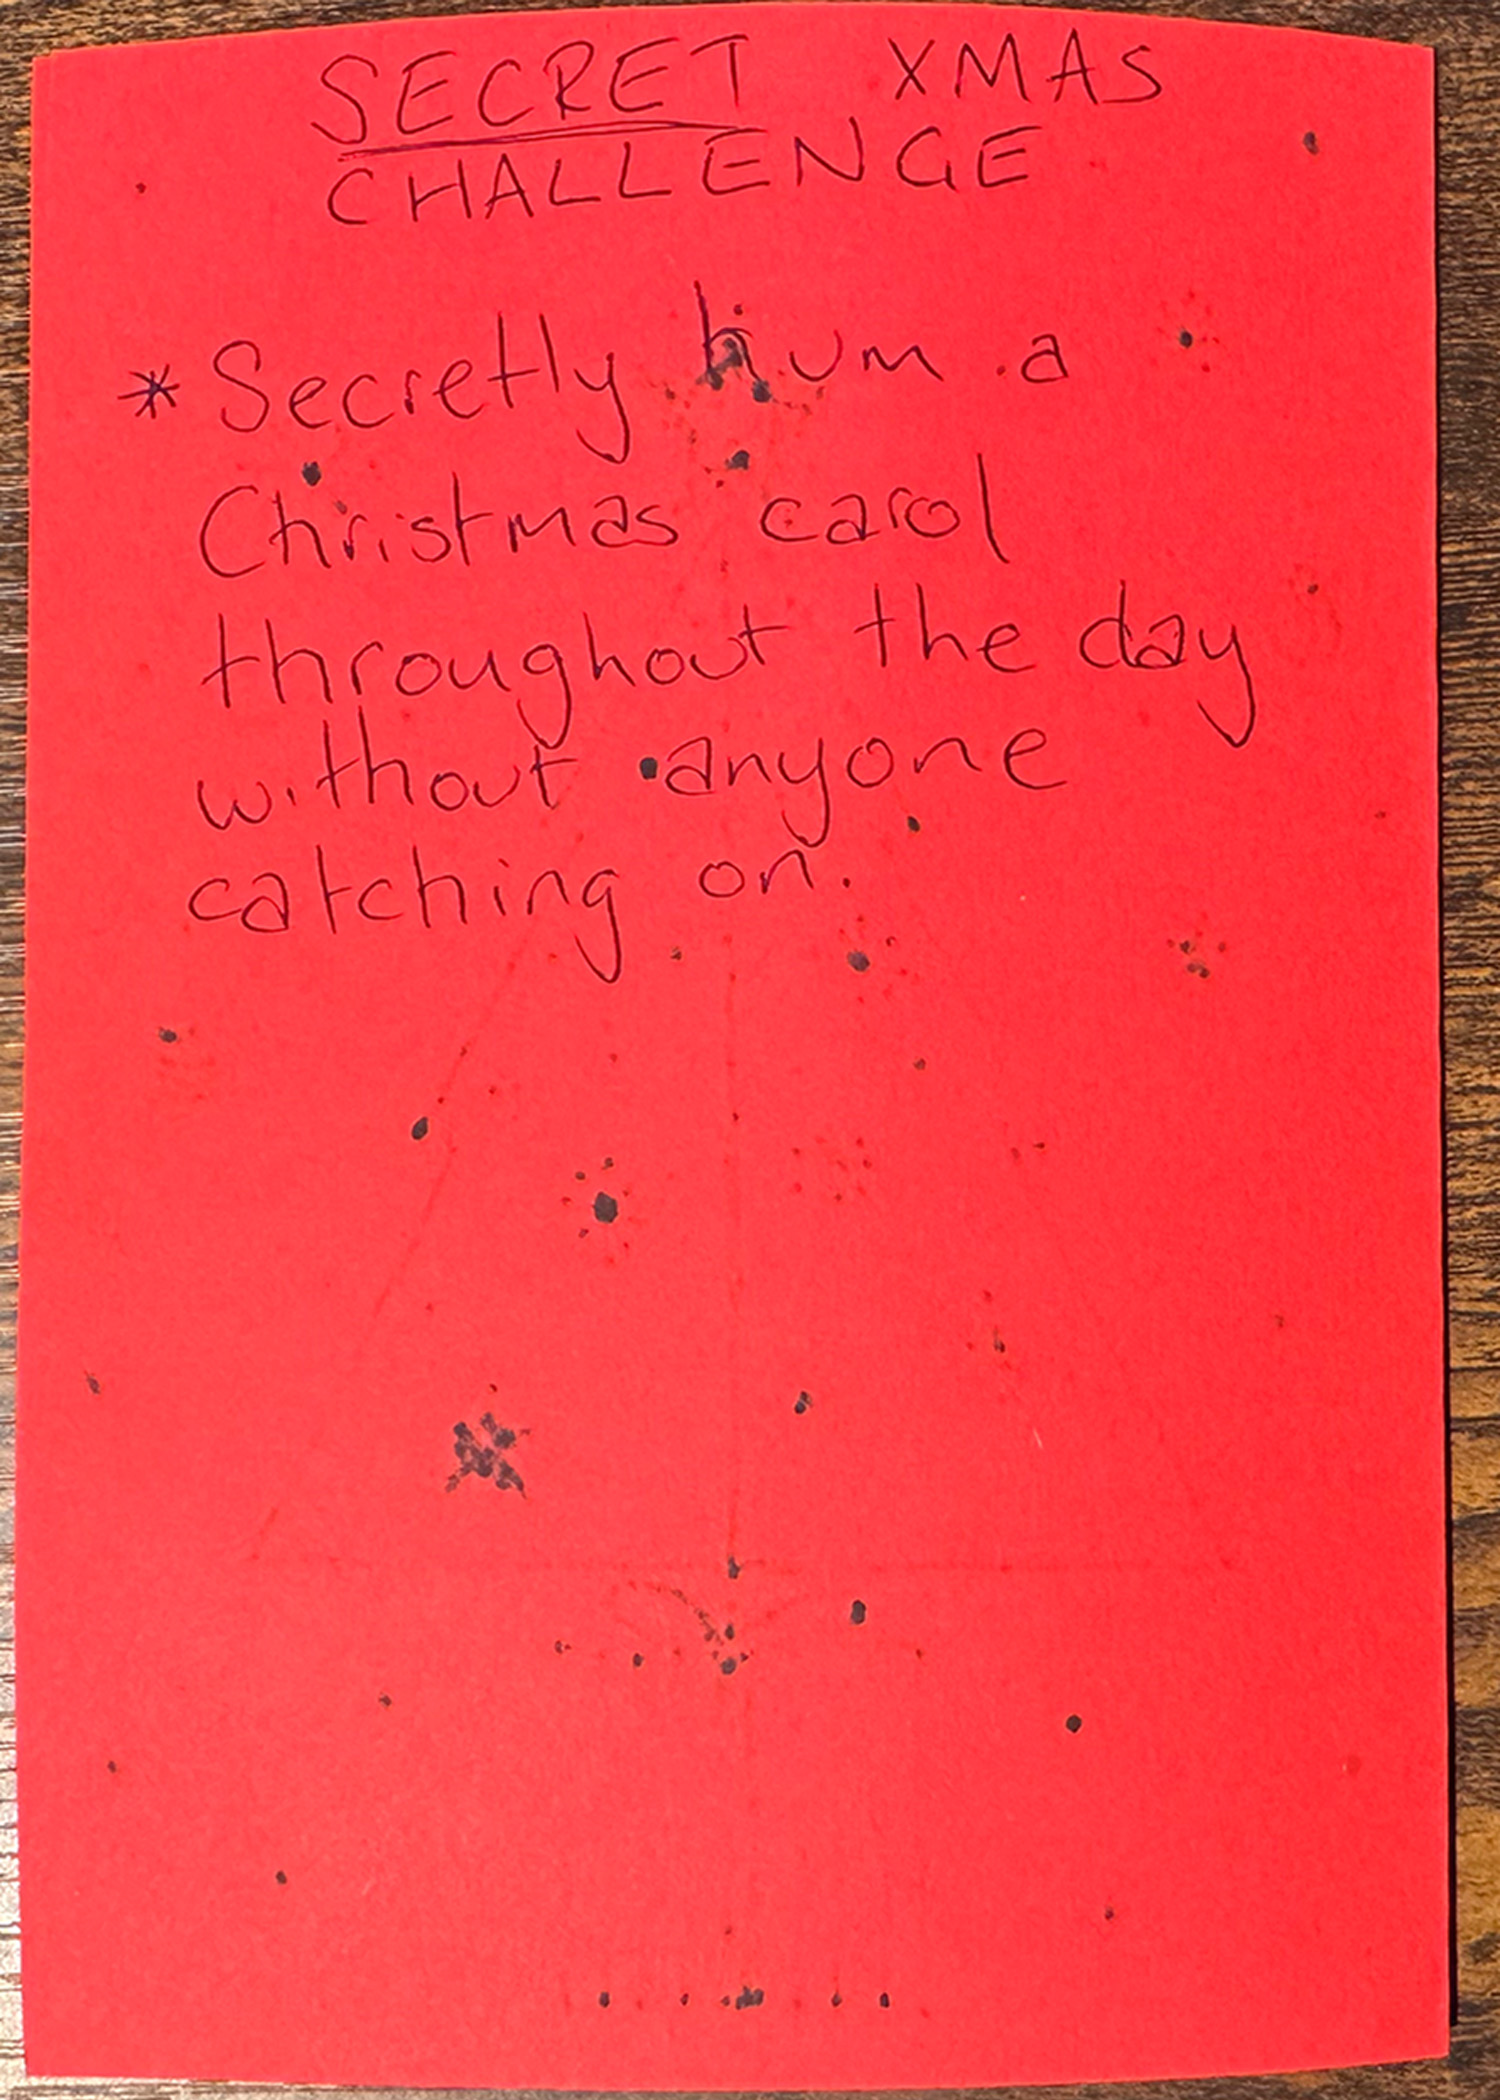 SECRET XMAS
CHALLENGE
* Secretly hum a
Christmas carol
throughout the day
without anyone
catching on.